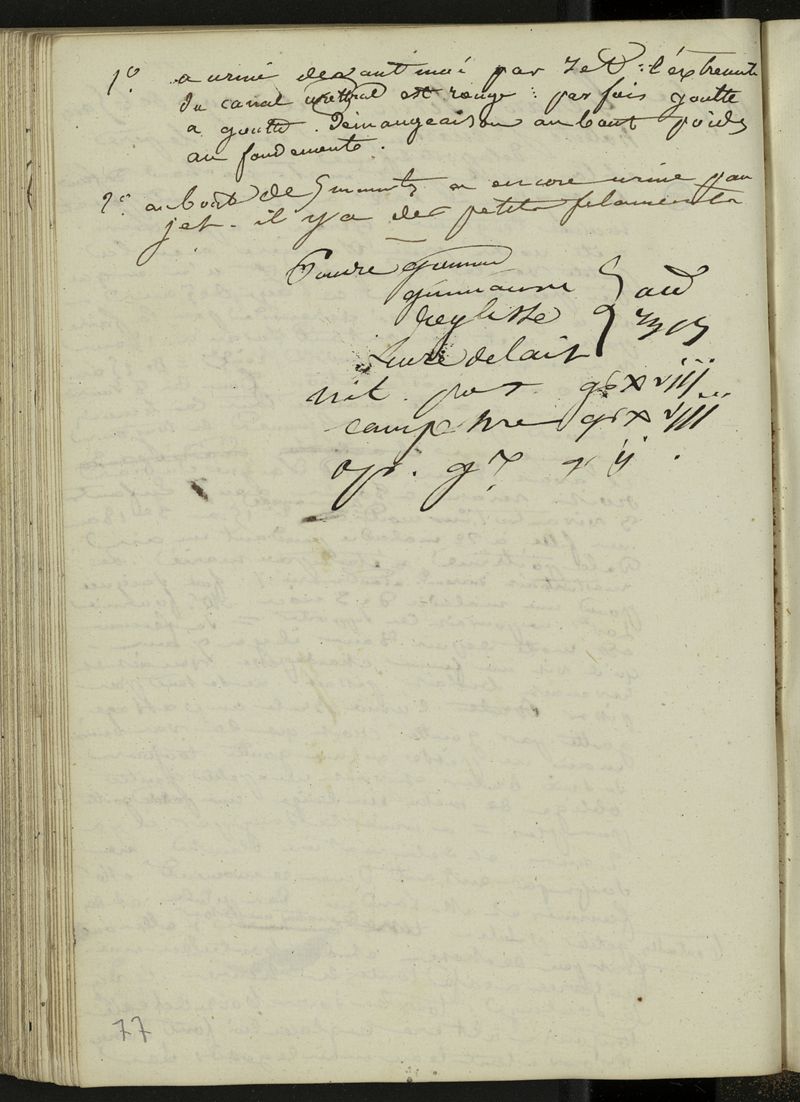 1° a uriné devant moi par jet : l'extremité
du canal uréthral est rouge : parfois goutte
a goutte. Demangeaison au bout poids
au fondement.
2° au bout de 5 minutes a encore uriné par
jet. il y a des petits filaments
Poudre gomme
guimauve
reglisse
sucre de lait
nit. pot. gr XVIII
camphre gr XVIII
op. g ij.
77